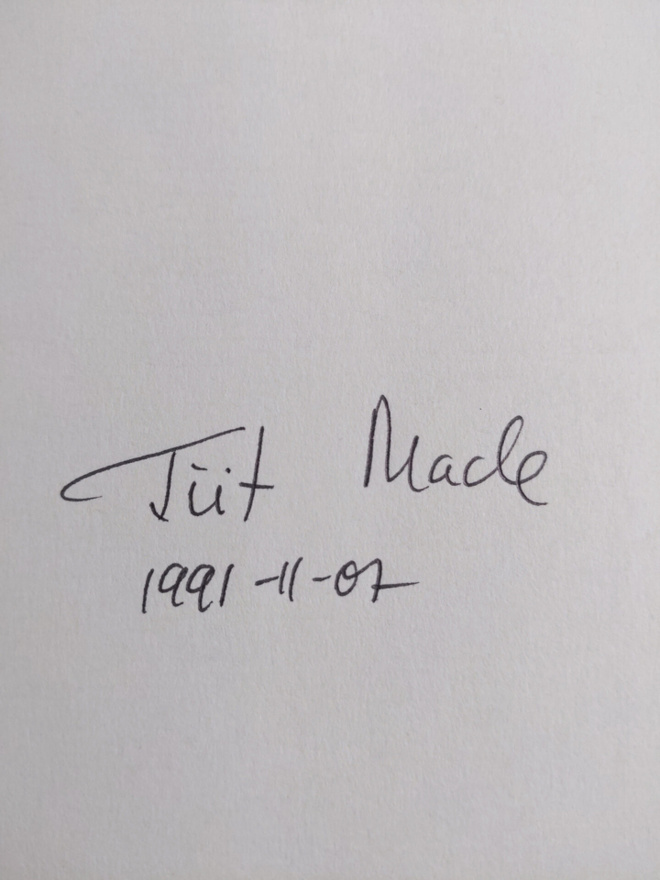 Tiit Made
1991-11-07